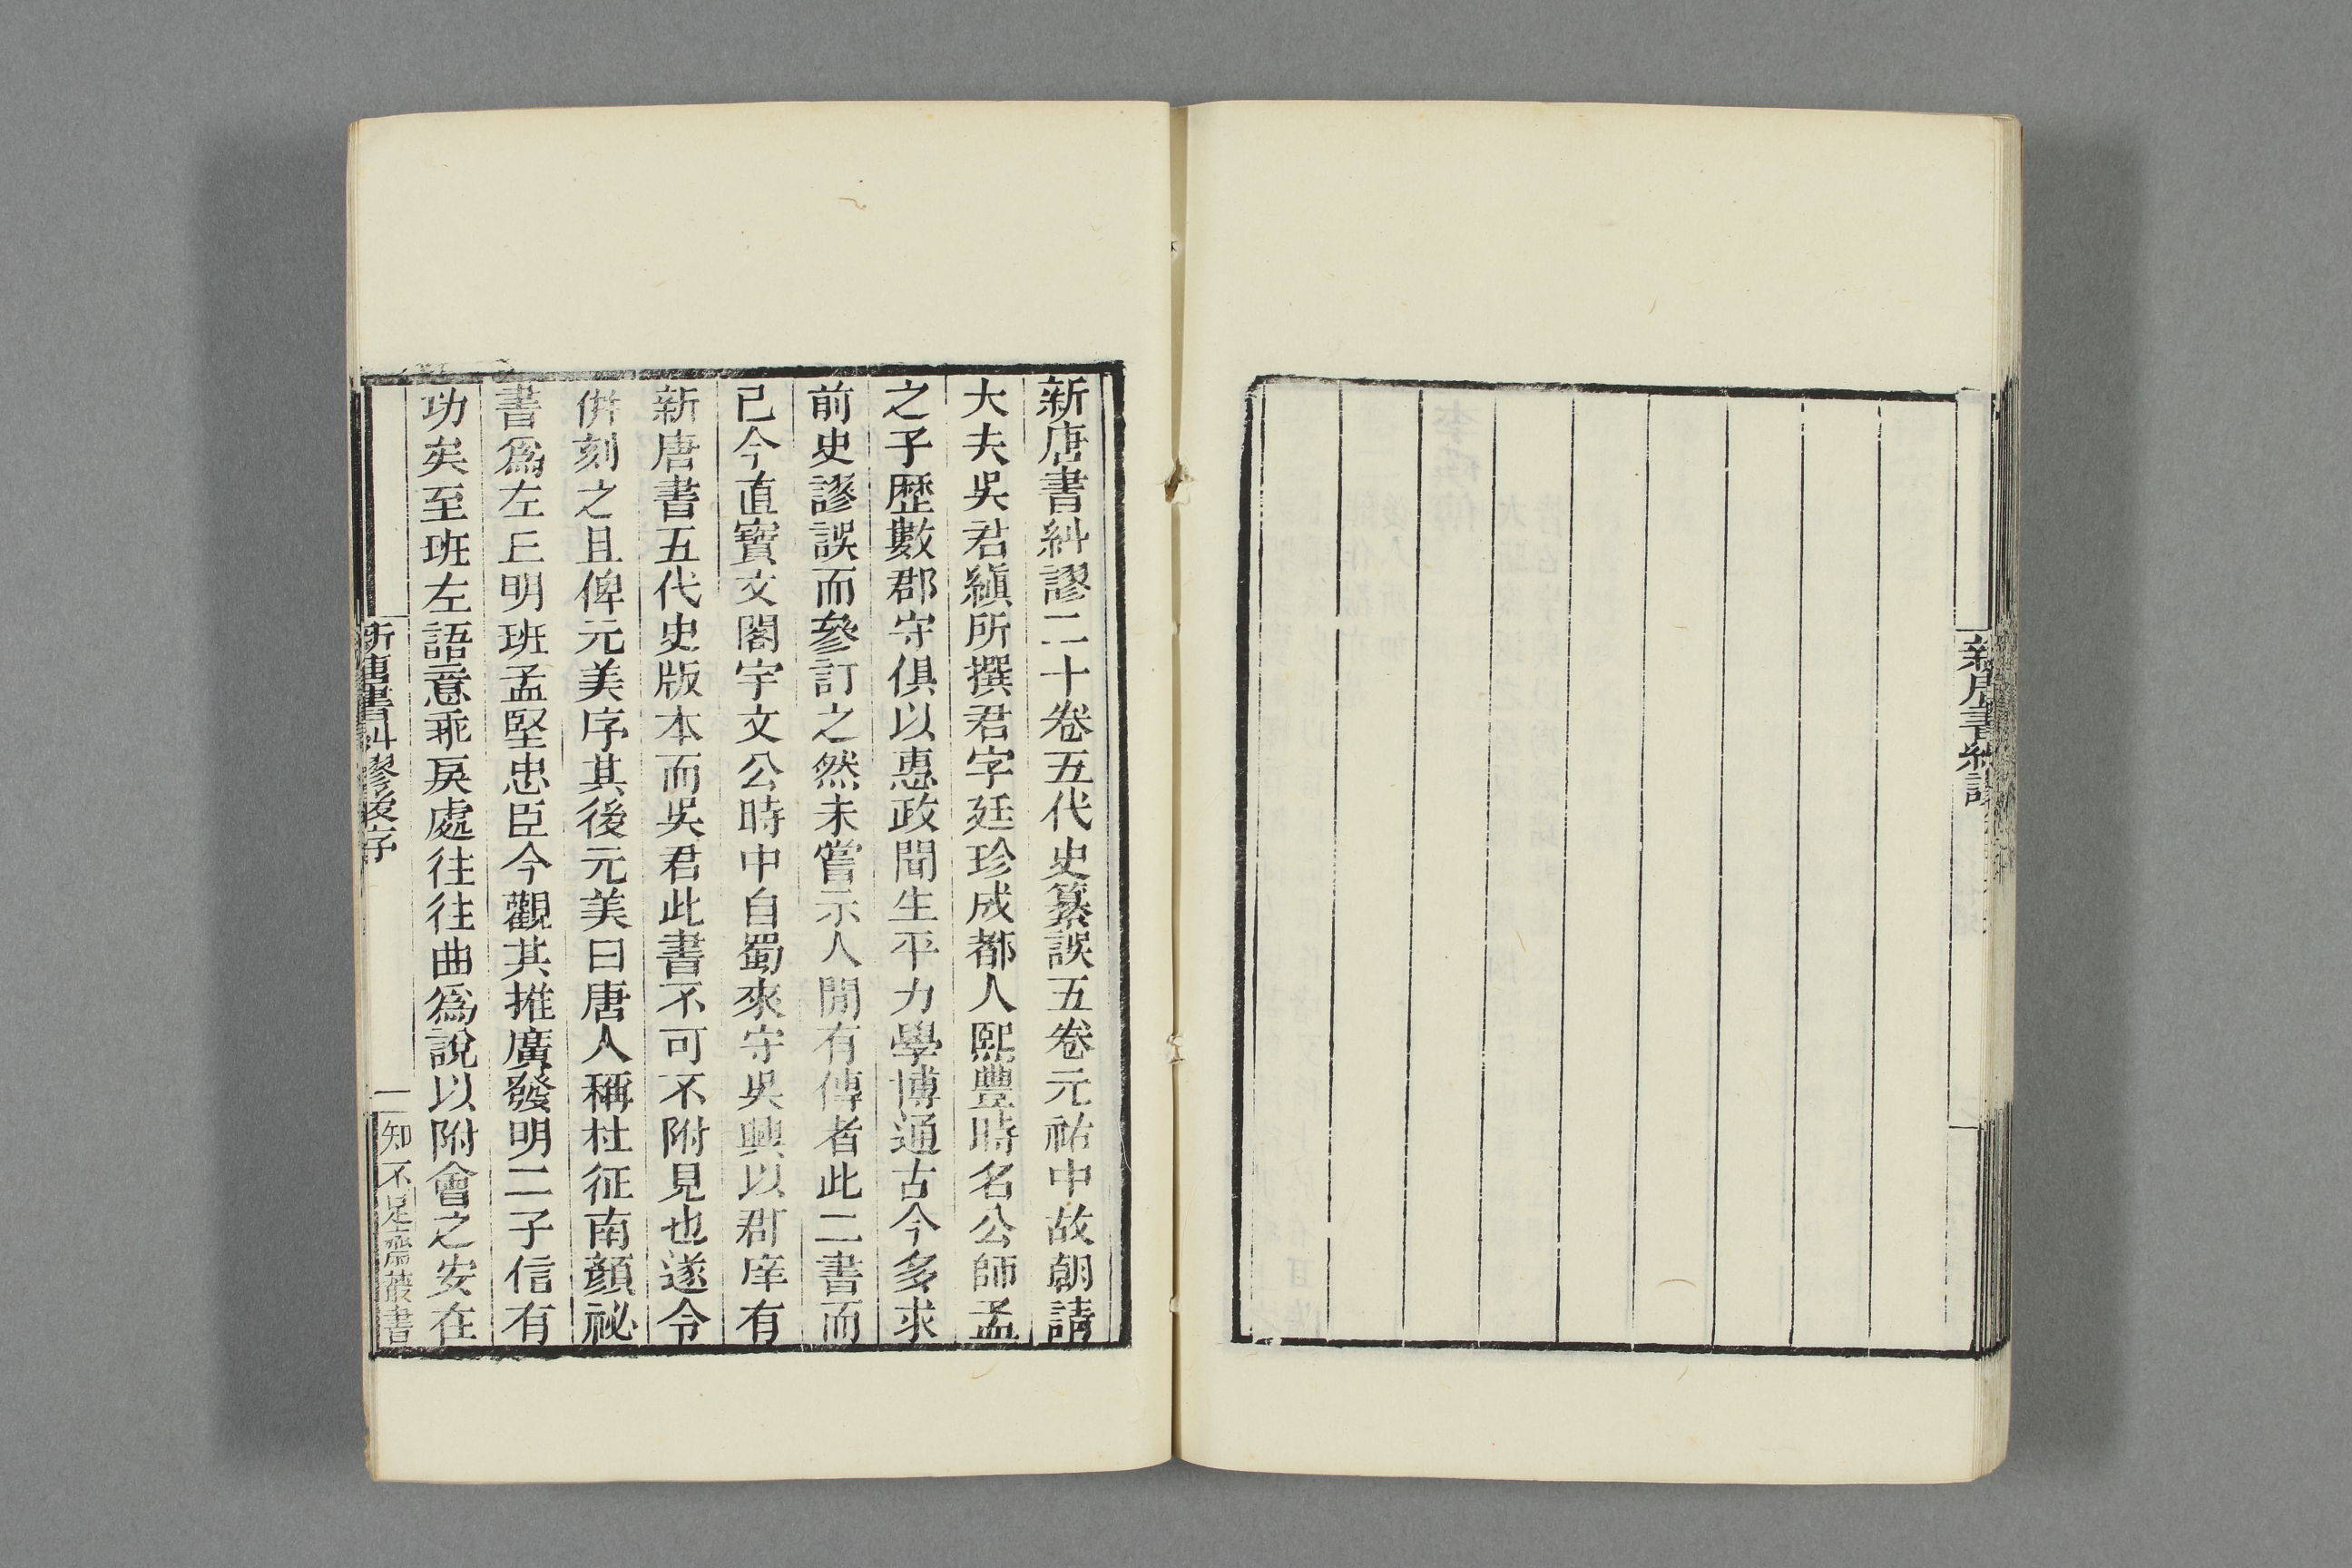 新唐書糾謬
新唐書糾謬二十卷五代史纂誤五卷元祐中故朝請
大夫吳君縝所撰君字廷珍成都人熙豐時名公師孟
之子歷數郡守俱以惠政聞生平力學博通古今多求
前史謬誤而參訂之然未嘗示人閒有傳者此二書而
已今直寳文閣宇文公時中自蜀來守吳興以郡庠有
新唐書五代史版本而吳君此書不可不附見也遂令
併刻之且俾元美序其後元美曰唐人稱杜征南顔祕
書爲左丘明班孟堅忠臣今觀其推廣發明二子信有
功矣至班左語意乖戾處往往曲爲說以附會之安在
新唐書糾謬後序
一知不足齋叢書